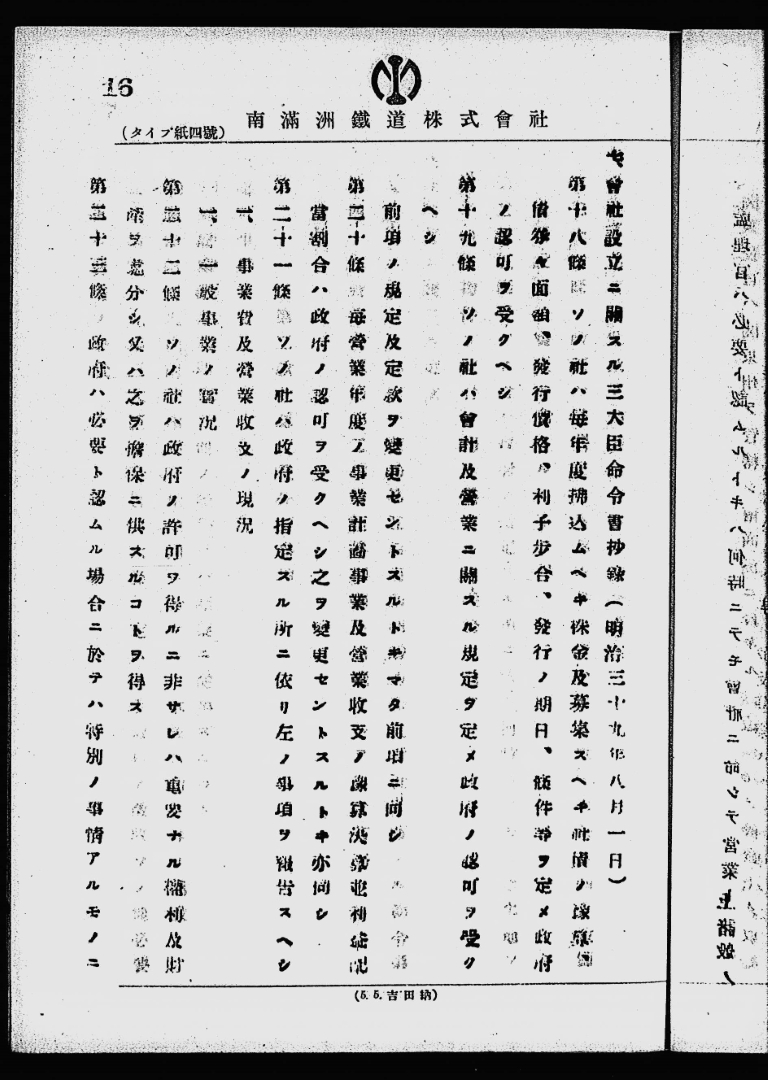 16
南滿洲鐵道株式會社
(タイプ紙四號)
七、會社設立ニ關スル三大臣命令書抄錄(明治三十九年八月一日)
第十八條 ソノ社ハ毎年度拂込ムヘキ株金及募集スヘキ社債ノ豫算
債券ノ面額、發行價格、利子步合、發行ノ期日、條件等ヲ定メ政府
ノ認可ヲ受クヘシ
第十九條 ソノ社ハ會計及營業ニ關スル規定ヲ定メ政府ノ認可ヲ受ク
ヘシ
前項ノ規定及定款ヲ變更セントスルトキマタ前項ニ同シ
第二十條 毎營業年度ノ事業計畫事業及營業收支ノ豫算決算並利益配
當割合ハ政府ノ認可ヲ受クヘシ之ヲ變更セントスルトキ亦同シ
第二十一條 ソノ社ハ政府ノ指定スル所ニ依リ左ノ事項ヲ報告スヘシ
一、事業費及營業收支ノ現況
一、一般事業ノ實況
第二十二條 ソノ社ハ政府ノ許可ヲ得ルニ非サレハ重要ナル權利及財
產ヲ處分シ又ハ之ヲ擔保ニ供スルコトヲ得ス
第二十三條 政府ハ必要ト認ムル場合ニ於テハ特別ノ事情アルモノニ
(5. 5. 吉田納)
監理官ハ必要ト認ムルトキハ何時ニテモ會社ニ命シテ營業上諸般ノ